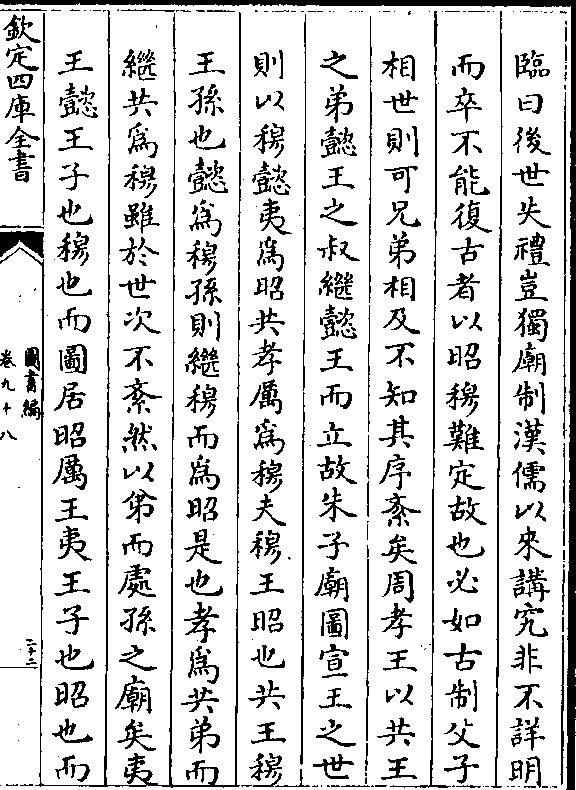 臨曰後世失禮豈獨廟制漢儒以來講究非不詳明
而卒不能復古者以昭穆難定故也必如古制父子
相世則可兄弟相及不知其序紊矣周孝王以共王
之弟懿王之叔繼懿王而立故朱子廟圖宣王之世
則以穆懿夷為昭共孝厲為穆夫穆王昭也共王穆
王孫也懿為穆孫則繼穆而為昭是也孝為共弟而
繼共為穆雖於世次不紊然以弟而處孫之廟矣夷
王懿王子也穆也而圖居昭厲王夷王子也昭也而
欽定四庫全書
圖書編
卷九十八
二十二